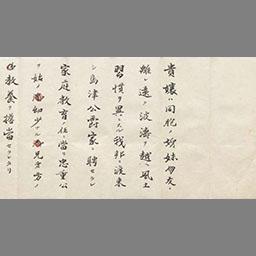 貴嬢ハ同胞ノ姉妹朋友ト
離レ遠ク波濤ヲ越ヘ風土
習慣ヲ異ニスル我邦ニ渡来
シ島津公爵家ニ聘セラレ
家庭教育ノ任ニ當リ忠重公
ヲ始メ幼少ナル兄弟方ノ
教養ヲ擔當セラレタリ